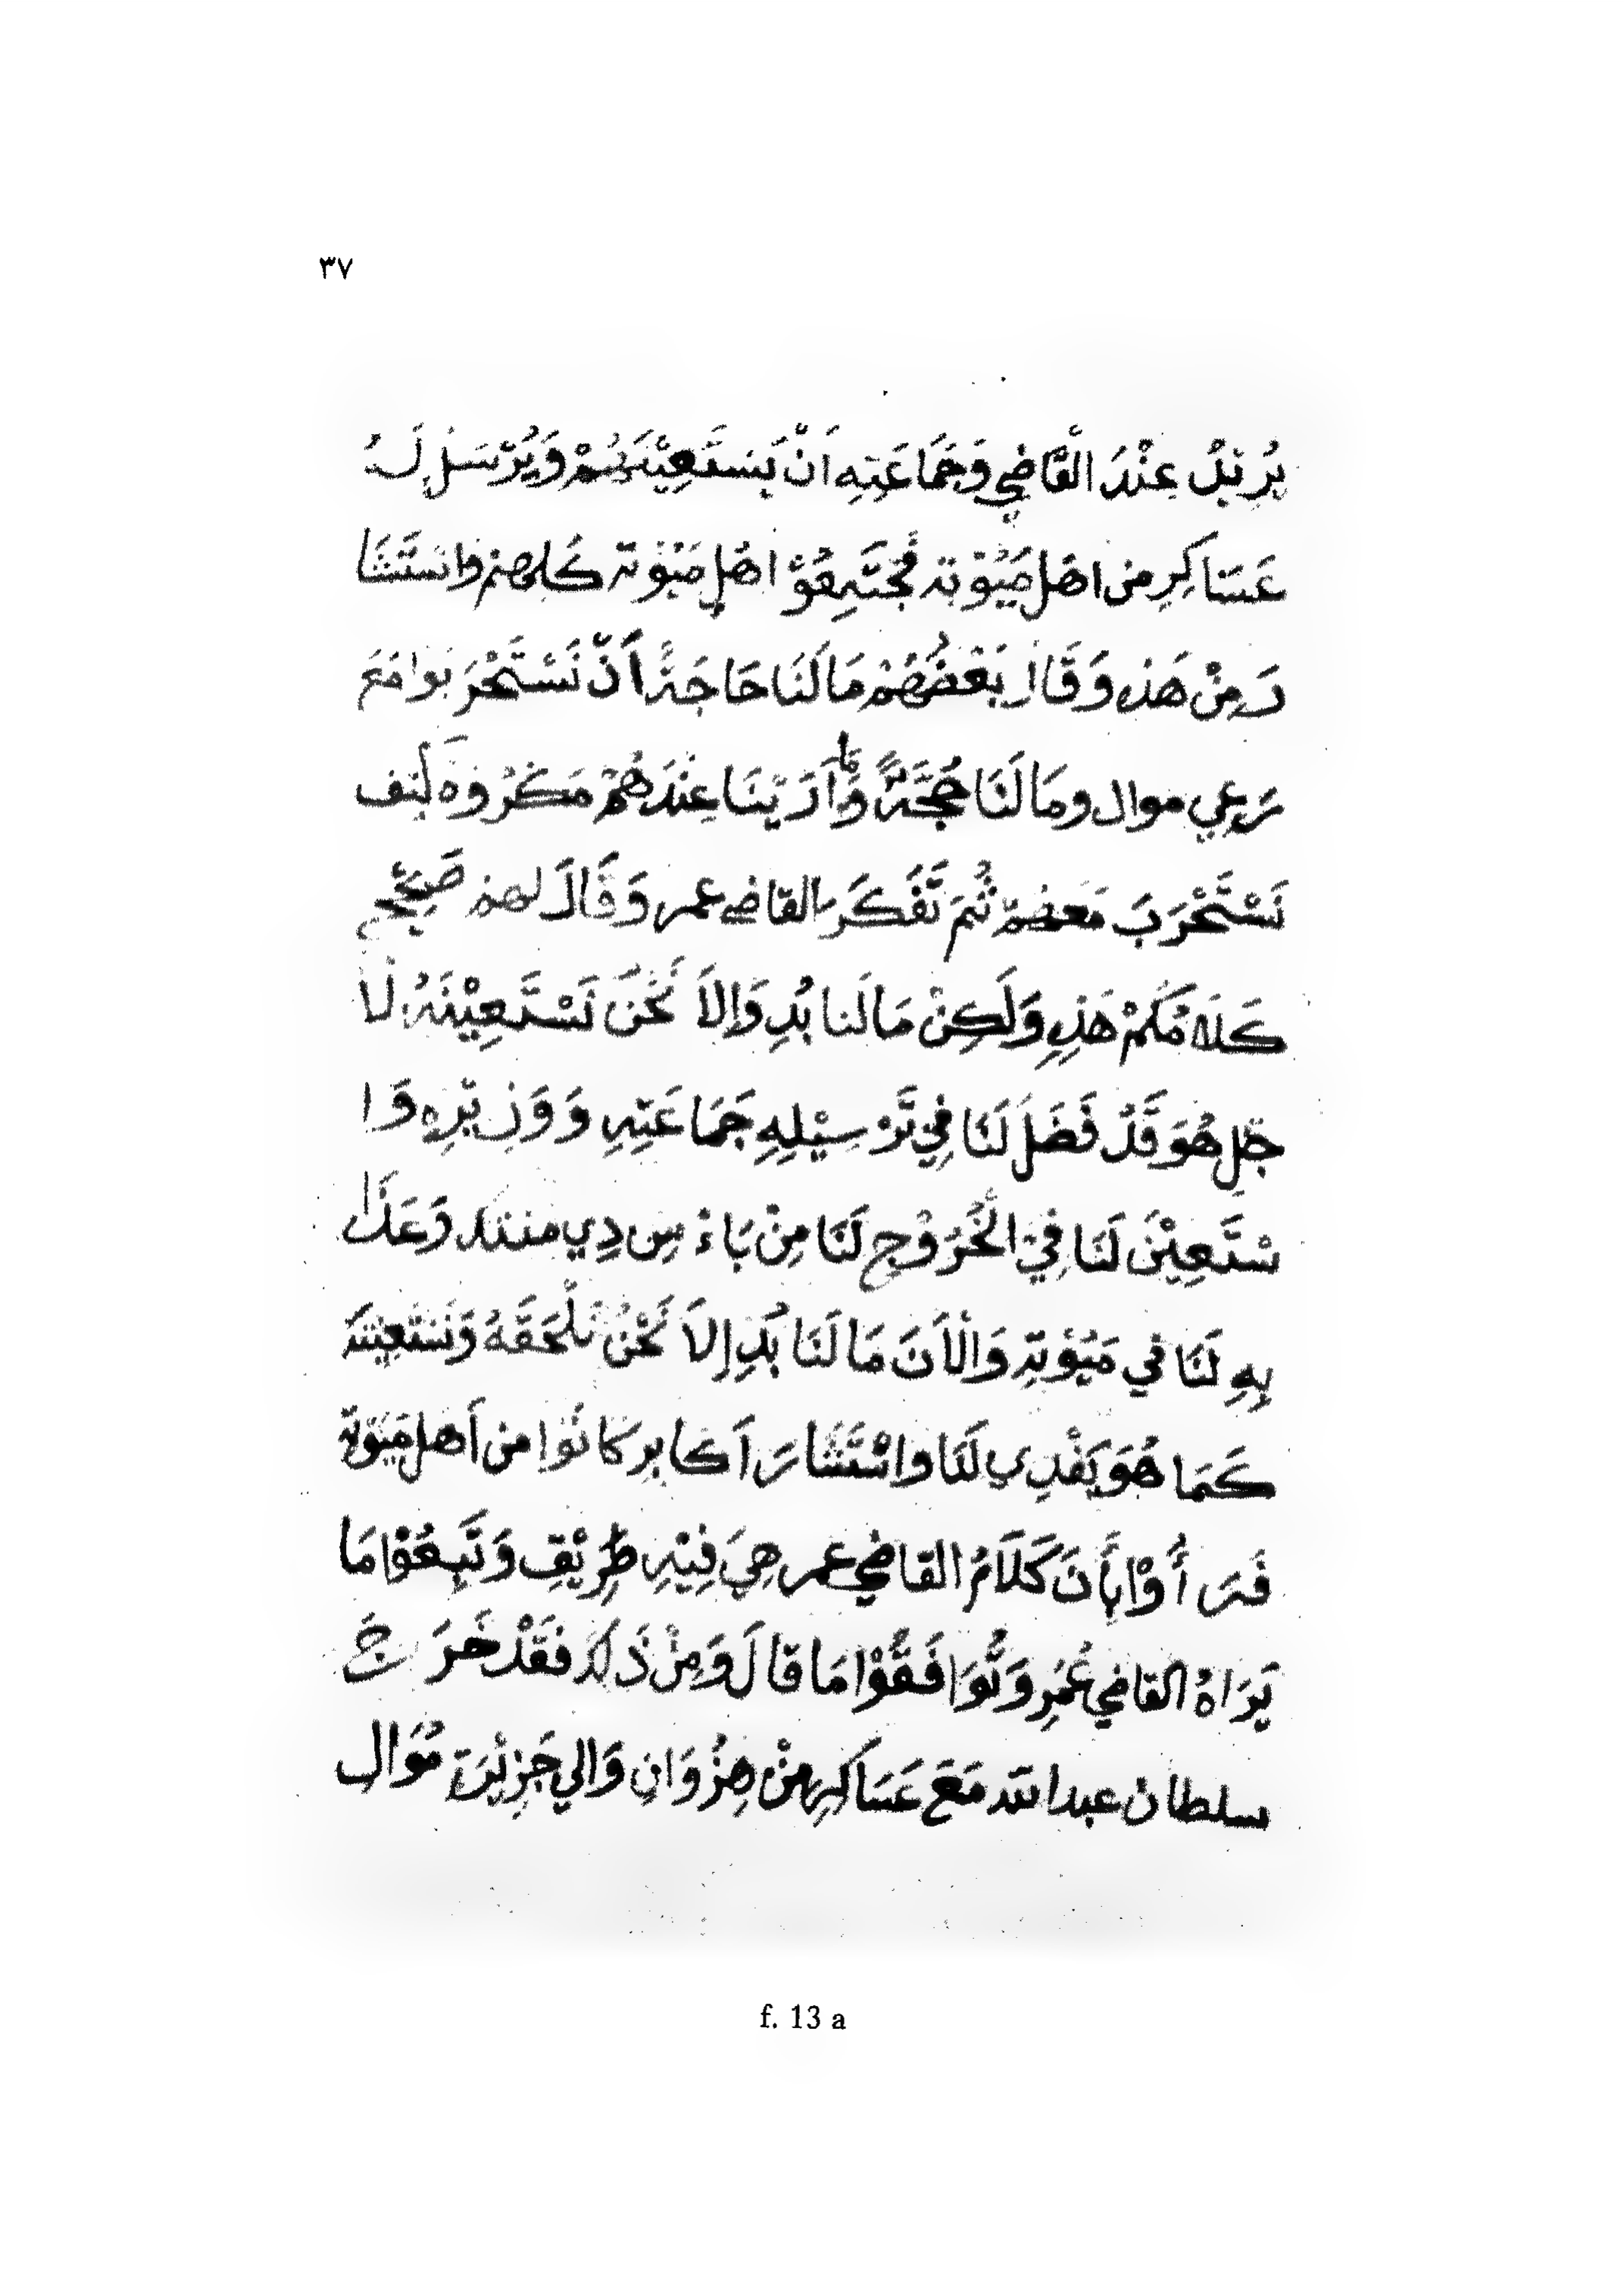 ٣٧
يُرِيْدُ عِنْدَ الْقَاضِي وَجَمَاعَتِهِ اَنْ يَسْتَعِيْنَهُمْ وَيُرْسَلْ لَهُ
عَسَاكِرِ من اهْل مَيُوْتَةِ فَجْتَمِعُوْ اهْلِ مَيُوْتَة كُلهم واسْتَشَا
رَ مِنْ هَذِهِ وَقَالَ بَعْضُهُمْ مَا لَنَا حَاجَةً أَنْ نَسْتَحْرَبوا مَعَ
رَعِي موال وما لَنَا حُجَّةً وَمَا اَرَيْنَا عِنْدَهُمْ مَكْرُوه لَيف
نَسْتَحْرَبَ مَعهم ثُمَ تَفَكَرَ القاضي عمر وَقَالَ لهم صَحِيْح
كَلَامُكُمْ هَذِهِ وَلَكِنْ مَا لَنا بُدِ وَإِلاَ نَحْنَ نَسْتَعِيْنَهُ لَا
جْلِ هُوَ قَدْ فَضَلَ لَنَا فِي تَرْسِيْلِهِ جَمَاعَتِهِ وَوَزِيْرِهِ وَا
سْتَعِيْنَ لَنَا فِيْ الْخُرُوْجِ لَنَا مِنْ بَاءْسِ دِي مننند وَعَدَا
بِهِ لَنَا في مَيُوْتَةِ وَالْاَنَ مَا لَنَا بُدِ إِلاَ نَحْنُ نَلْحَقَهُ وَنَسْتَعِيْنَهُ
كَمَا هُوَ يَفْدِي لَنَا وَاسْتَشَارَ اَكابر كَانُوا من أَهل مَيُوْتَة
فَرَأُوْا بِأَنَ كَلَامُ القاضي عمر هِيَ فِيْهِ طَرِيْقِ وَتَبِعُوْا مَا
يَرَاهُ القاضي عُمَرِ وَتُوَافَقُوْا مَا قَالَ وَمِنْ ذَلِكَ فَقَدْ خَرَجَ
سلطان عبد الله مَعَ عَسَاكِرِ مِنْ هِنْزُوَانِ وَالي جَزِيْرَة مُوَال
f. 13 a